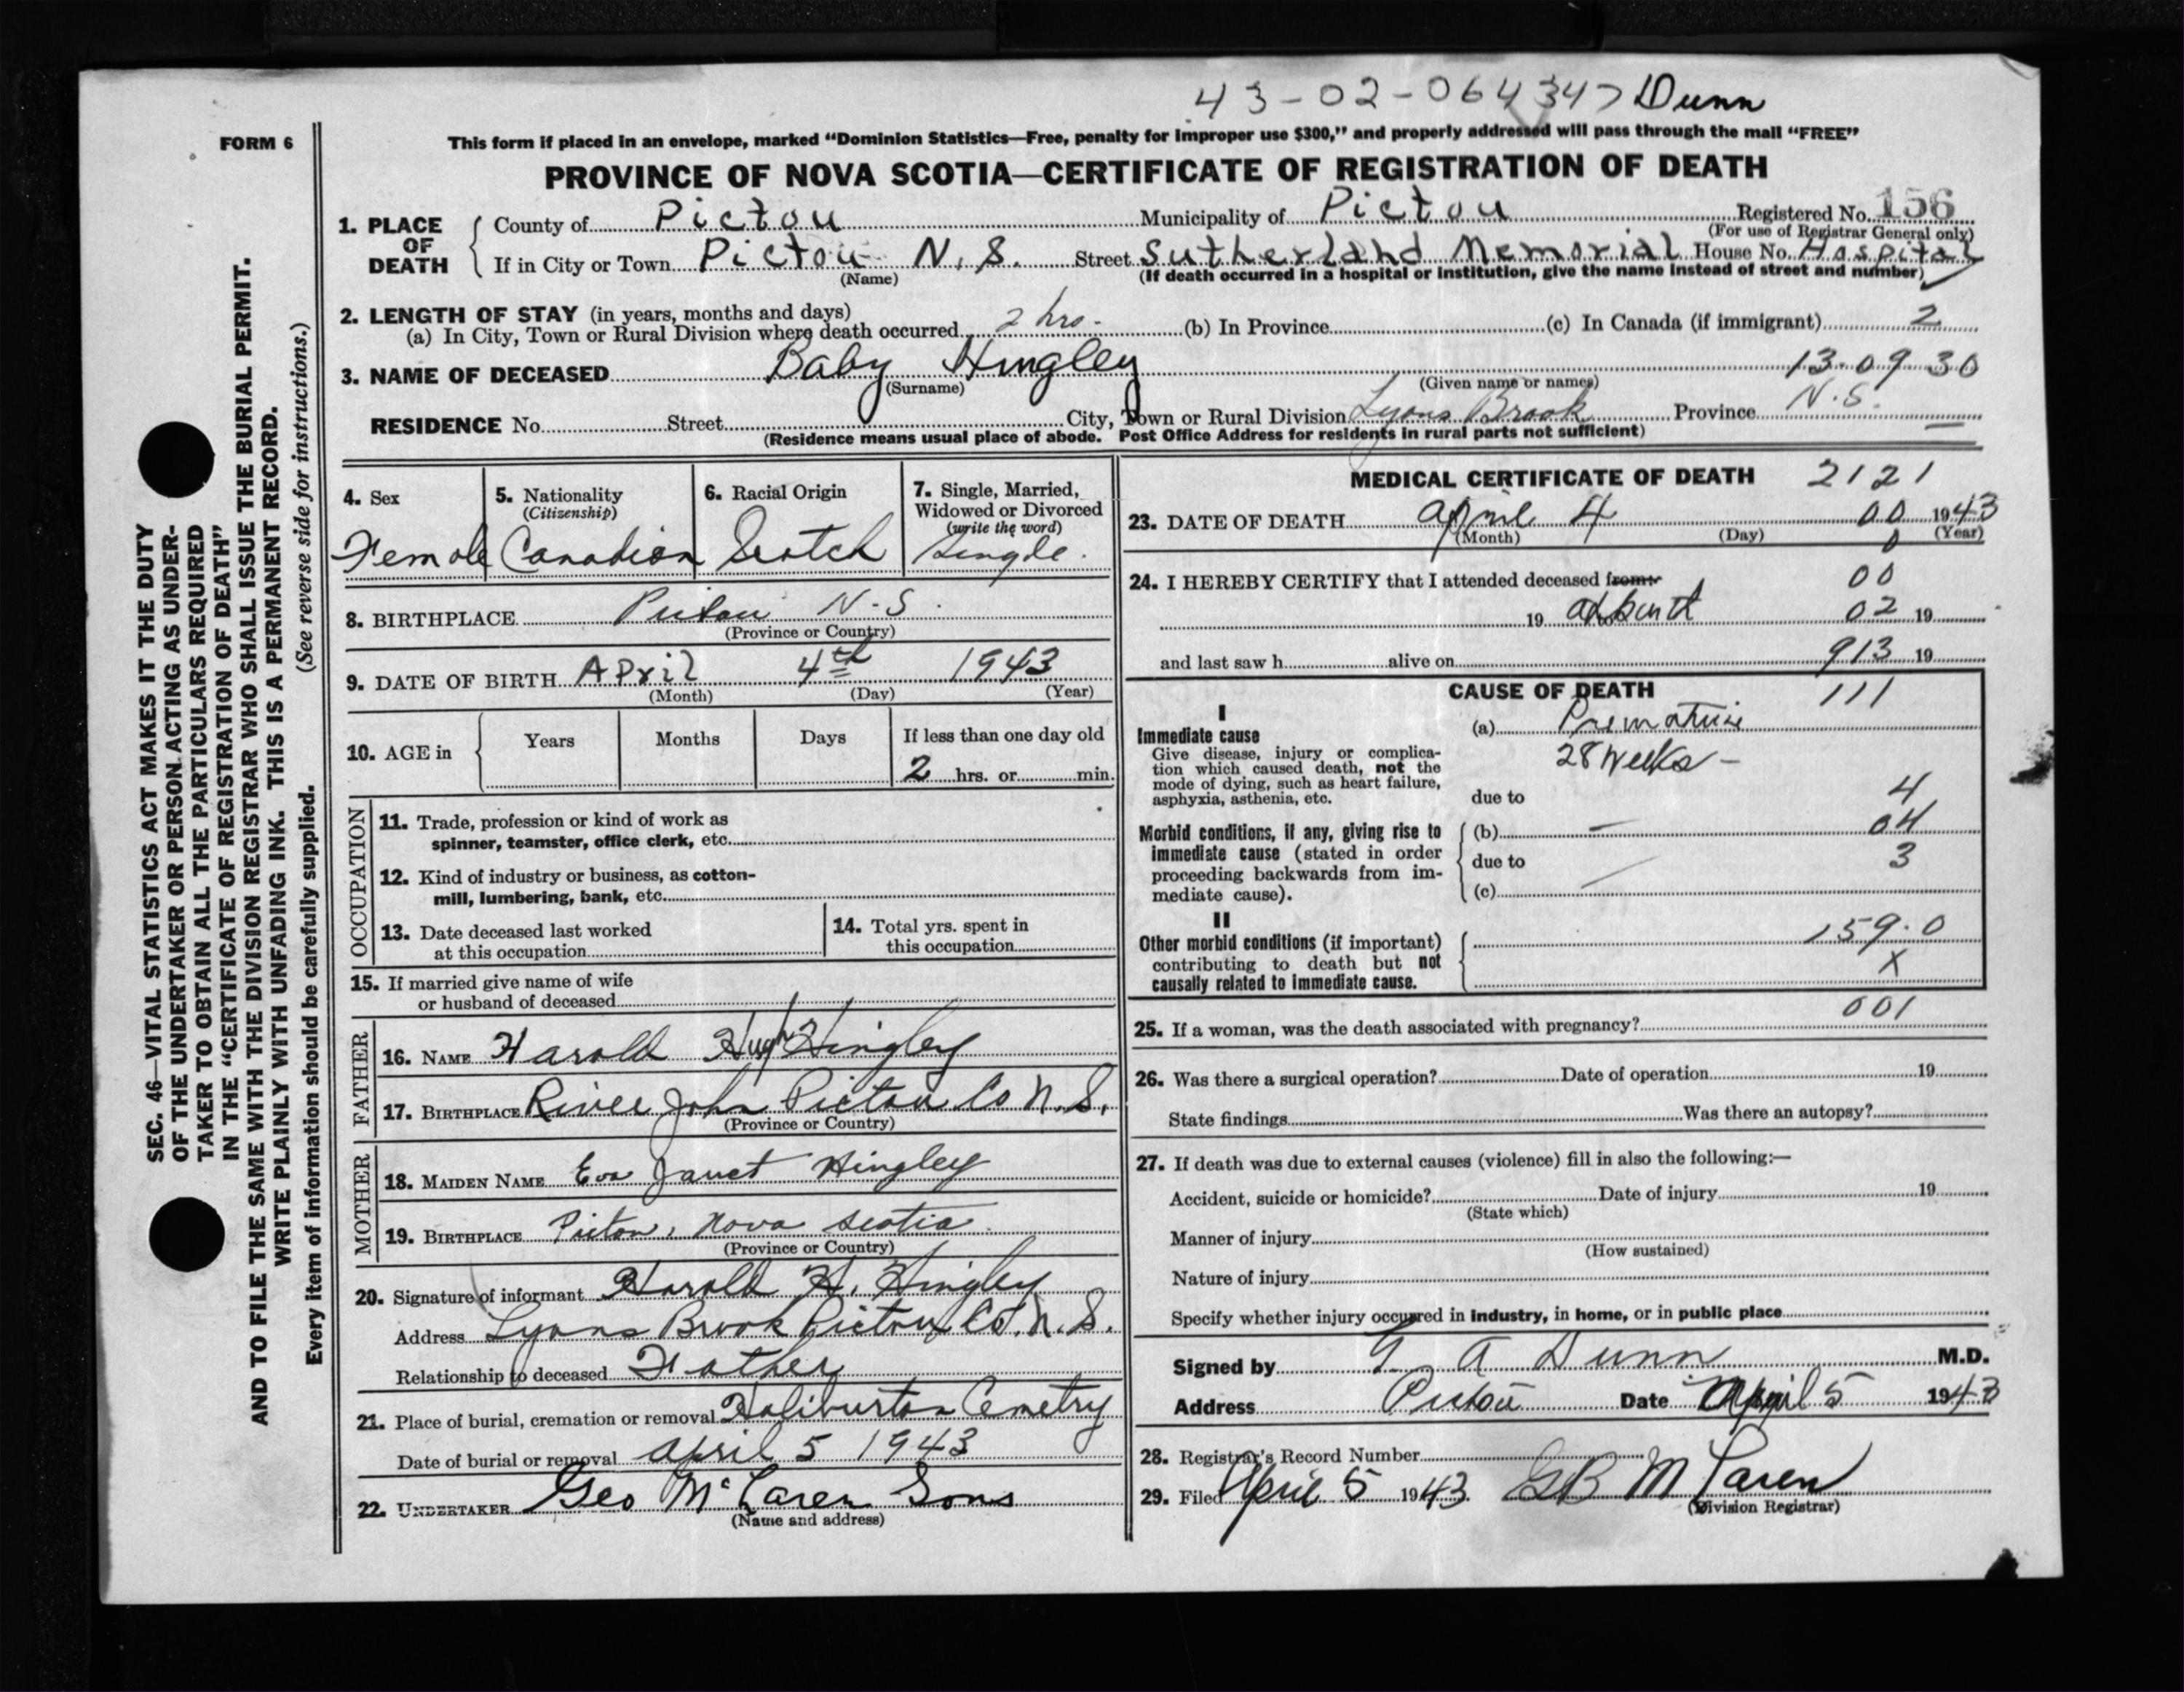 43-02-064347 Dunn
FORM 6
This form if placed in an envelope, marked "Dominion Statistics—Free, penalty for improper use $300," and properly addressed will pass through the mail "FREE"
PROVINCE OF NOVA SCOTIA—CERTIFICATE OF REGISTRATION OF DEATH
1. PLACE OF DEATH
County of Pictou Municipality of Pictou Registered No. 156
(For use of Registrar General only)
If in City or Town Pictou N.S. Street Sutherland Memorial House No. Hospital
(Name) (If death occurred in a hospital or institution, give the name instead of street and number)
2. LENGTH OF STAY (in years, months and days)
(a) In City, Town or Rural Division where death occurred 2 hrs. (b) In Province (c) In Canada (if immigrant) 2
3. NAME OF DECEASED Baby Hingley 13.09 30
(Surname) (Given name or names)
RESIDENCE No. Street City, Town or Rural Division Lyons Brook Province N.S.
(Residence means usual place of abode. Post Office Address for residents in rural parts not sufficient)
4. Sex
Female
5. Nationality
(Citizenship)
Canadian
6. Racial Origin
Scotch
7. Single, Married,
Widowed or Divorced
(write the word)
Single.
8. BIRTHPLACE Pictou N.S.
(Province or Country)
9. DATE OF BIRTH April 4th 1943
(Month) (Day) (Year)
10. AGE in
Years Months Days If less than one day old
2 hrs. or min.
OCCUPATION
11. Trade, profession or kind of work as
spinner, teamster, office clerk, etc.
12. Kind of industry or business, as cotton-
mill, lumbering, bank, etc.
13. Date deceased last worked
at this occupation
14. Total yrs. spent in
this occupation
15. If married give name of wife
or husband of deceased
FATHER
16. NAME Harold Hugh Hingley
17. BIRTHPLACE River John Pictou Co N.S.
(Province or Country)
MOTHER
18. MAIDEN NAME Eva Janet Hingley
19. BIRTHPLACE Pictou, Nova Scotia
(Province or Country)
20. Signature of informant Harold H. Hingley
Address Lyons Brook Pictou Co. N.S.
Relationship to deceased Father
21. Place of burial, cremation or removal Haliburton Cemetry
Date of burial or removal April 5 1943
22. UNDERTAKER Geo McLaren Sons
(Name and address)
MEDICAL CERTIFICATE OF DEATH 2121
23. DATE OF DEATH April 4 00 1943
(Month) (Day) (Year)
24. I HEREBY CERTIFY that I attended deceased from: 00
19 at birth 02 19
and last saw h alive on 913 19
CAUSE OF DEATH 111
I
Immediate cause
Give disease, injury or complica-
tion which caused death, not the
mode of dying, such as heart failure,
asphyxia, asthenia, etc.
(a) Premature
28 weeks –
due to 4
Morbid conditions, if any, giving rise to
immediate cause (stated in order
proceeding backwards from im-
mediate cause).
(b) – 04
due to 3
(c)
II
Other morbid conditions (if important)
contributing to death but not
causally related to immediate cause.
159.0
X
001
25. If a woman, was the death associated with pregnancy?
26. Was there a surgical operation? Date of operation 19
State findings Was there an autopsy?
27. If death was due to external causes (violence) fill in also the following:—
Accident, suicide or homicide? Date of injury 19
(State which)
Manner of injury
(How sustained)
Nature of injury
Specify whether injury occurred in industry, in home, or in public place
Signed by G A Dunn M.D.
Address Pictou Date April 5 1943
28. Registrar's Record Number
29. Filed April 5 1943 GB McLaren
(Division Registrar)
SEC. 46—VITAL STATISTICS ACT MAKES IT THE DUTY
OF THE UNDERTAKER OR PERSON ACTING AS UNDER-
TAKER TO OBTAIN ALL THE PARTICULARS REQUIRED
IN THE "CERTIFICATE OF REGISTRATION OF DEATH"
AND TO FILE THE SAME WITH THE DIVISION REGISTRAR WHO SHALL ISSUE THE BURIAL PERMIT.
WRITE PLAINLY WITH UNFADING INK. THIS IS A PERMANENT RECORD.
Every item of information should be carefully supplied. (See reverse side for instructions.)